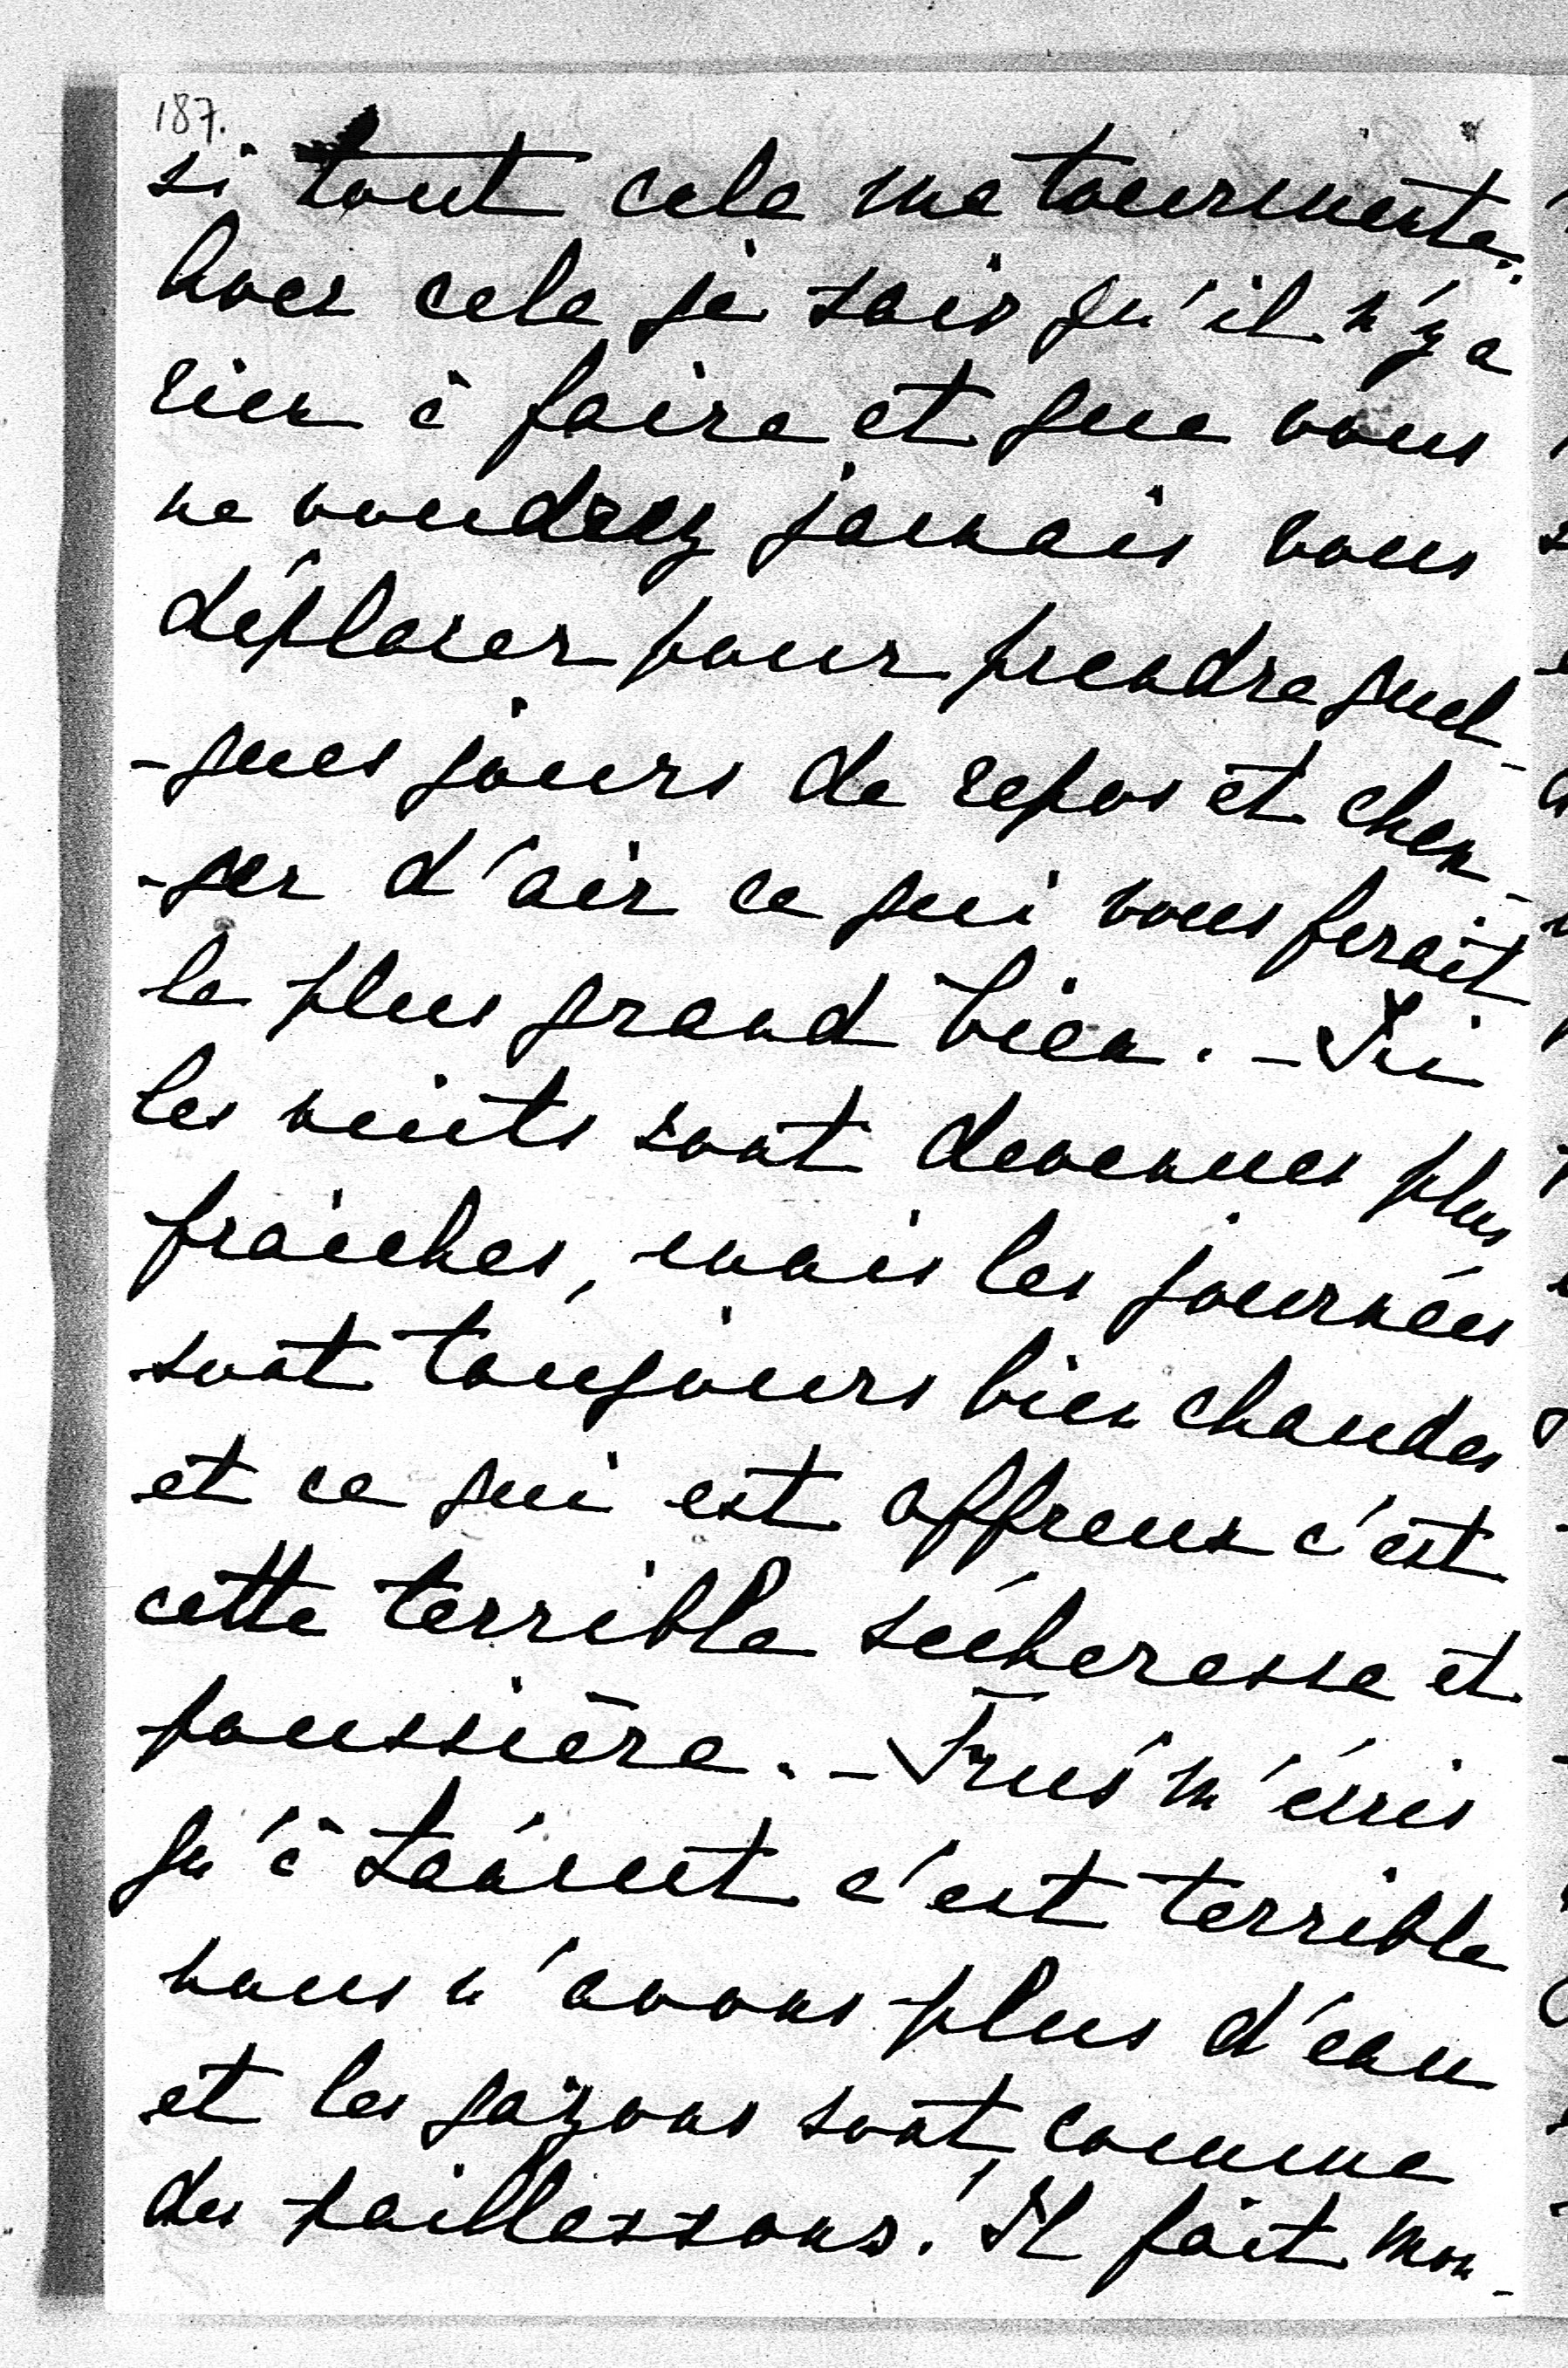 187.
si tout cela me tourmente.
Avec cela je sais qu'il n'y a
rien à faire et que vous
ne voudrez jamais vous
déplacer pour prendre quel-
-ques jours de repos et chan-
-ger d'air ce qui vous ferait
le plus grand bien. – Ici
les nuits sont devenues plus
fraiches, mais les journées
sont toujours bien chaudes
et ce qui est affreux c'est
cette terrible sécheresse et
poussière. – m'écris
qu'à c'est terrible
nous n'avons plus d'eau
et les gazons sont comme
des paillassons. Il fait mon-